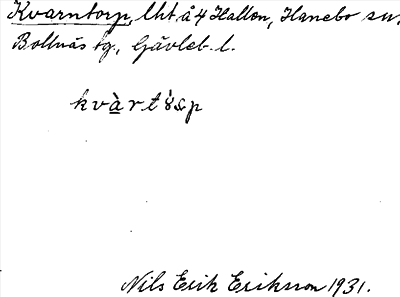 Kvarntorp, lht å 4 Hallen, Hanebo sn,
Bollnäs tg., Gävleb. l.
Nils Erik Eriksson 1931.